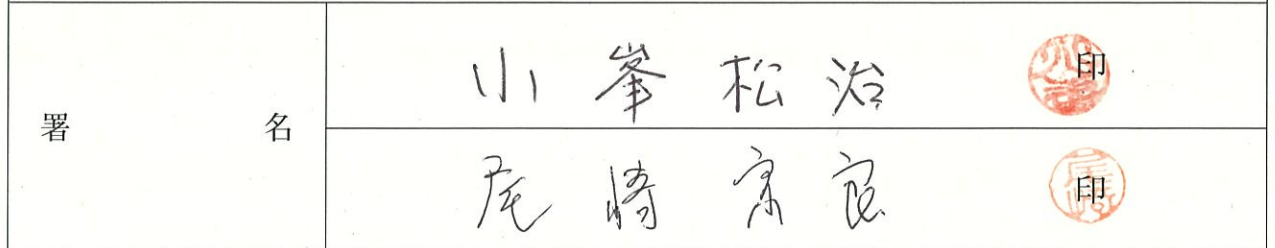 署名
小峯松治 印
尾崎宗良 印